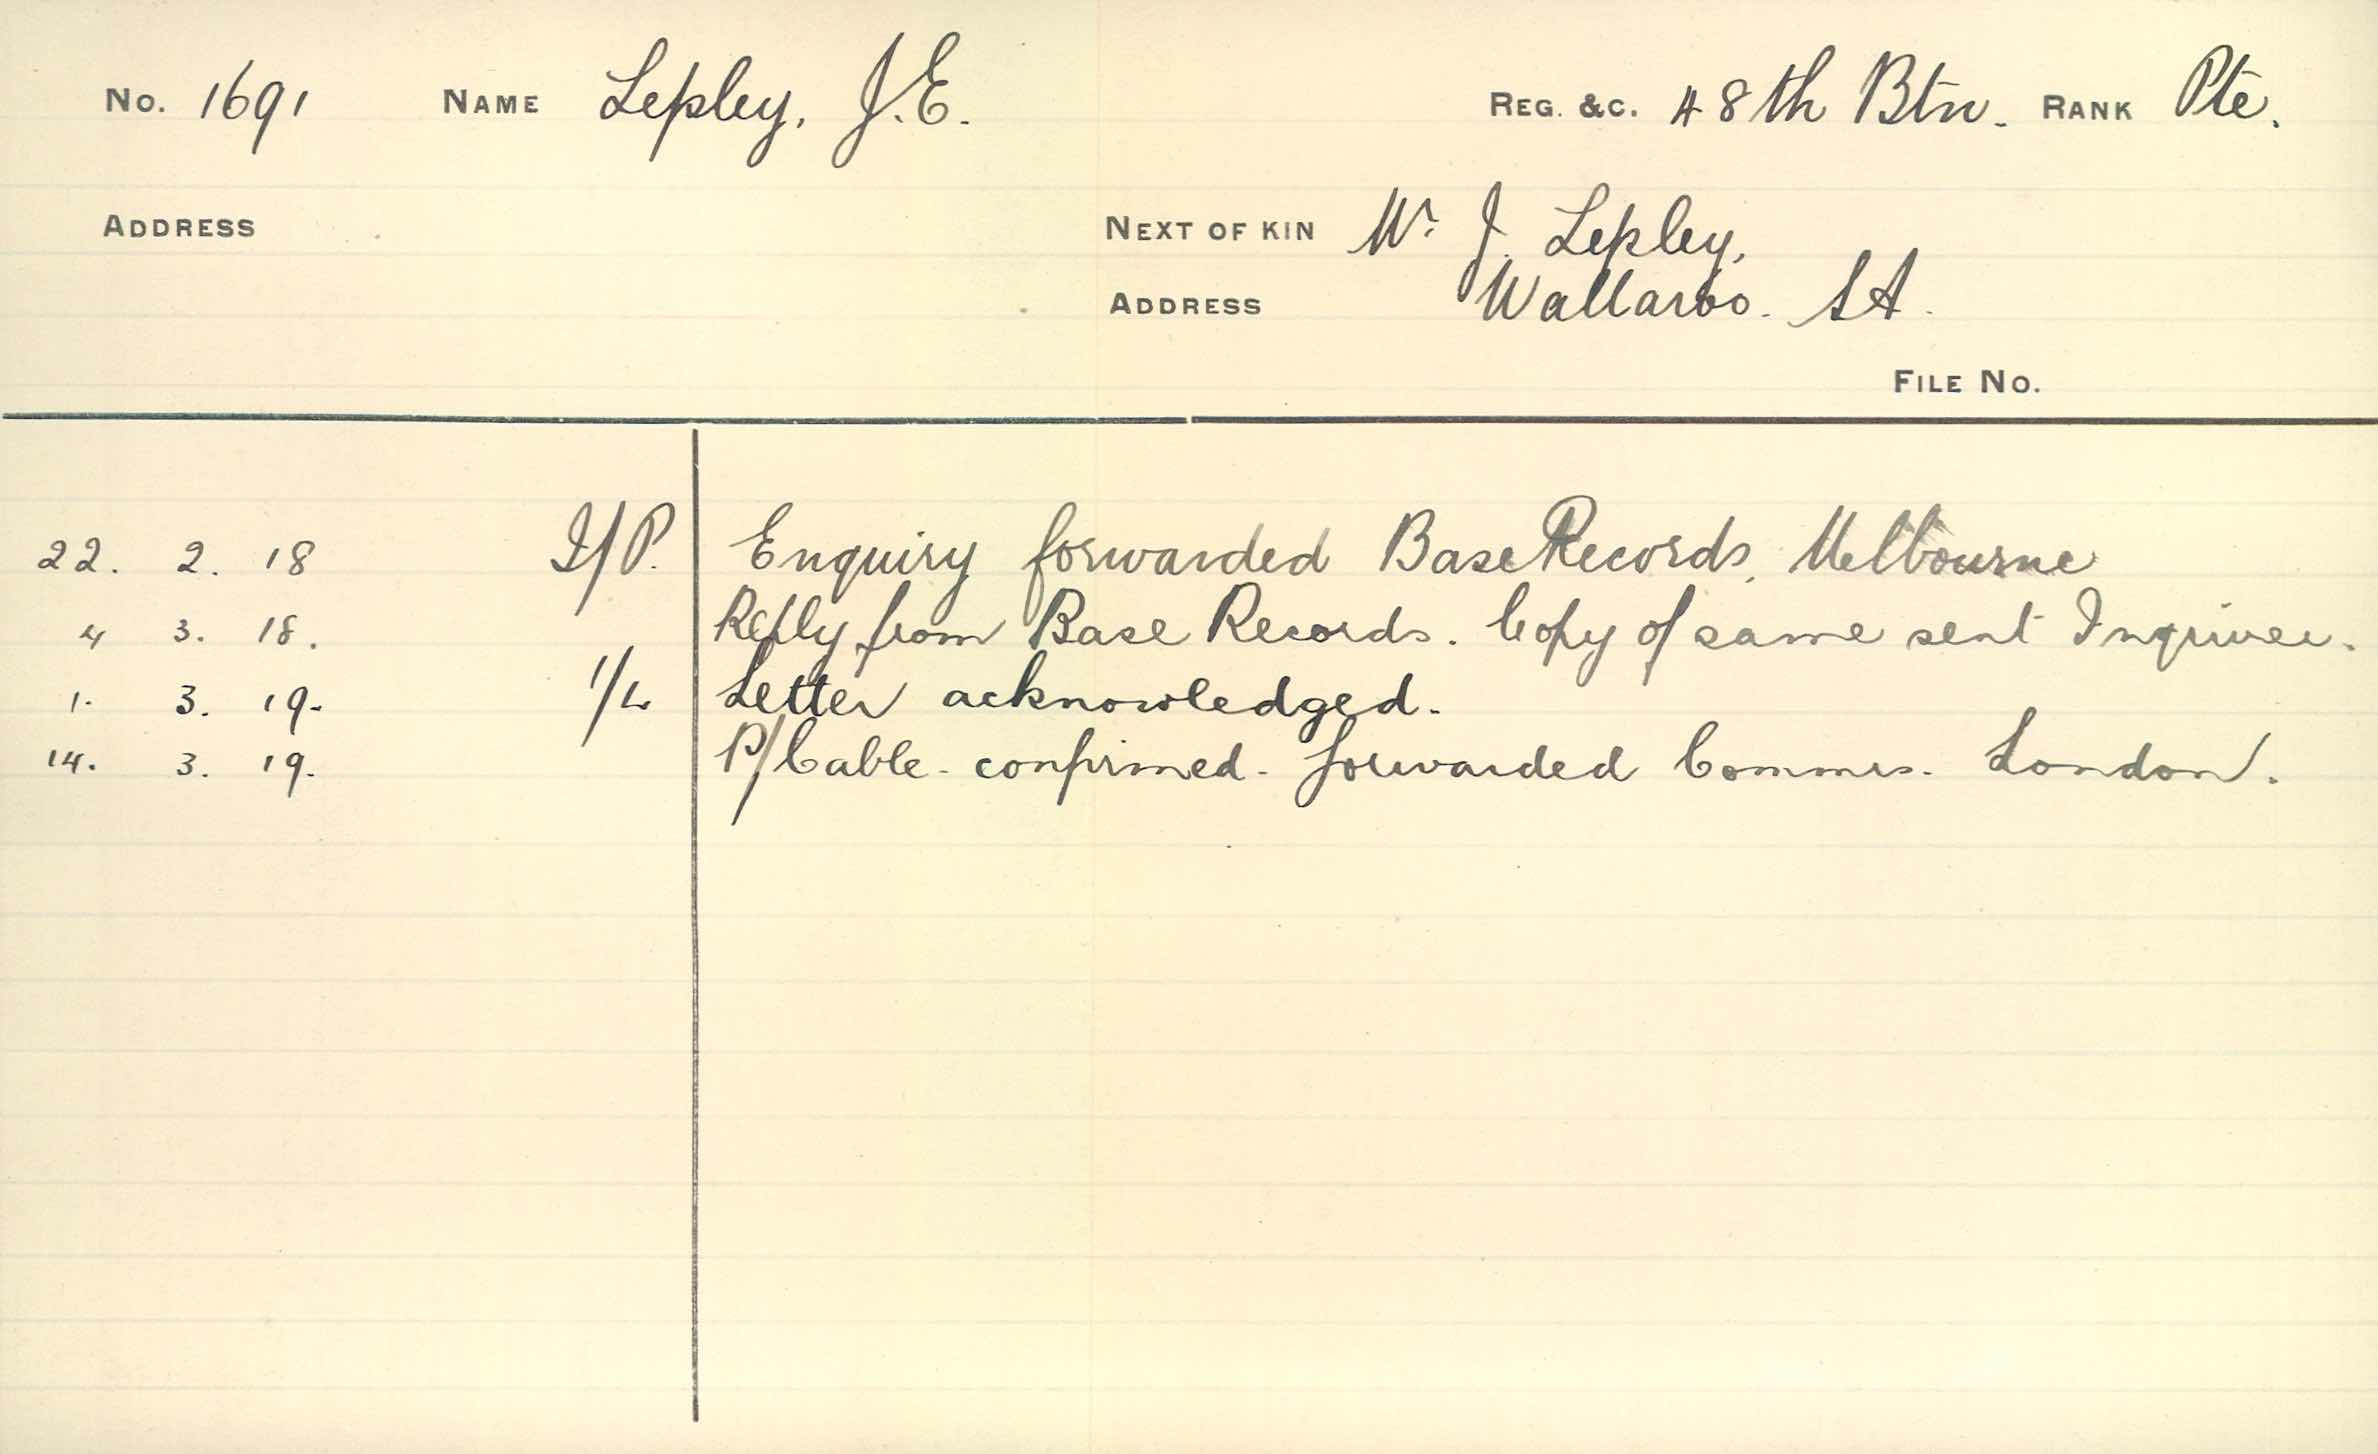 No. 1691 NAME Lepley, J.E. REG. &C. 48th Btn. RANK Pte.
ADDRESS NEXT OF KIN Mr. J. Lepley,
ADDRESS Wallaroo. SA.
FILE No.
22. 2. 18 I/P. Enquiry forwarded Base Records, Melbourne
4 3. 18. Reply from Base Records. Copy of same sent Inquirer.
1. 3. 19. 1/L Letter acknowledged.
14. 3. 19. P/Cable. confirmed. forwarded Commrs. London.